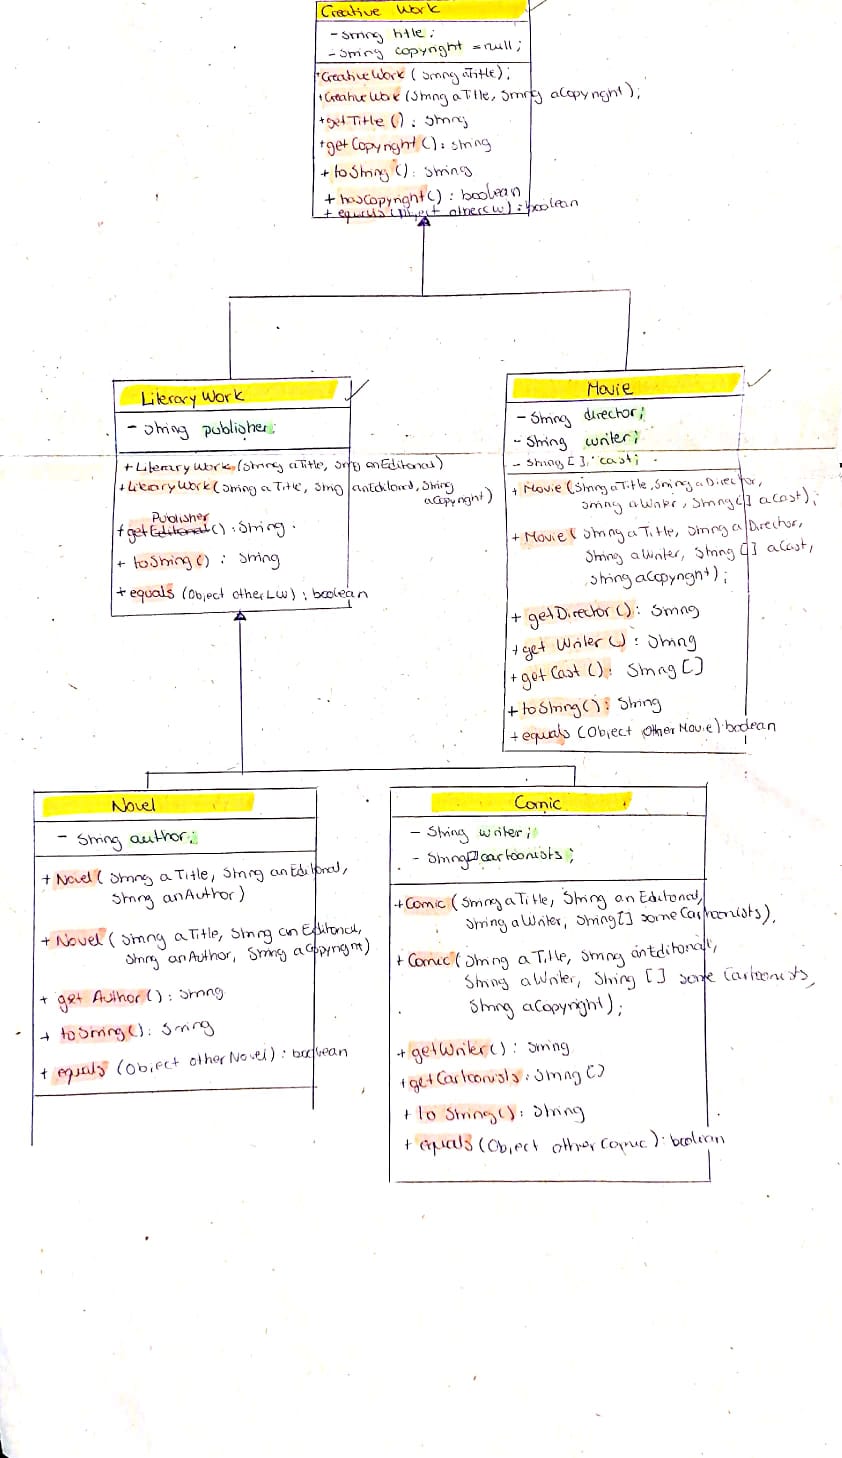 Creative Work
- String title;
- String copyright = null;
+ CreativeWork (String aTitle);
+ CreativeWork (String aTitle, String aCopyright);
+ getTitle () : String
+ getCopyright () : String
+ toString () : String
+ hasCopyright () : boolean
+ equals (Object otherCW) : boolean
Literary Work
- String publisher;
+ LiteraryWork (String aTitle, String anEditorial)
+ LiteraryWork (String aTitle, String anEditorial, String
aCopyright)
Publisher
+ getEditorial () : String.
+ toString () : String
+ equals (Object otherLW) : boolean
Movie
- String director;
- String writer;
- String [] cast;
+ Movie (String aTitle, String aDirector,
String aWriter, String [] aCast);
+ Movie (String aTitle, String aDirector,
String aWriter, String [] aCast,
String aCopyright);
+ getDirector () : String
+ get Writer () : String
+ getCast () : String []
+ toString () : String
+ equals (Object otherMovie) : boolean
Novel
- String author;
+ Novel (String aTitle, String anEditorial,
String anAuthor)
+ Novel (String aTitle, String anEditorial,
String anAuthor, String aCopyright)
+ get Author () : String
+ toString () : String
+ equals (Object otherNovel) : boolean
Comic
- String writer;
- String[] cartoonists;
+ Comic (String aTitle, String anEditorial,
String aWriter, String[] someCartoonists),
+ Comic (String aTitle, String anEditorial,
String aWriter, String [] some Cartoonists,
String aCopyright);
+ getWriter () : String
+ getCartoonists : String []
+ to String () : String
+ equals (Object otherComic) : boolean